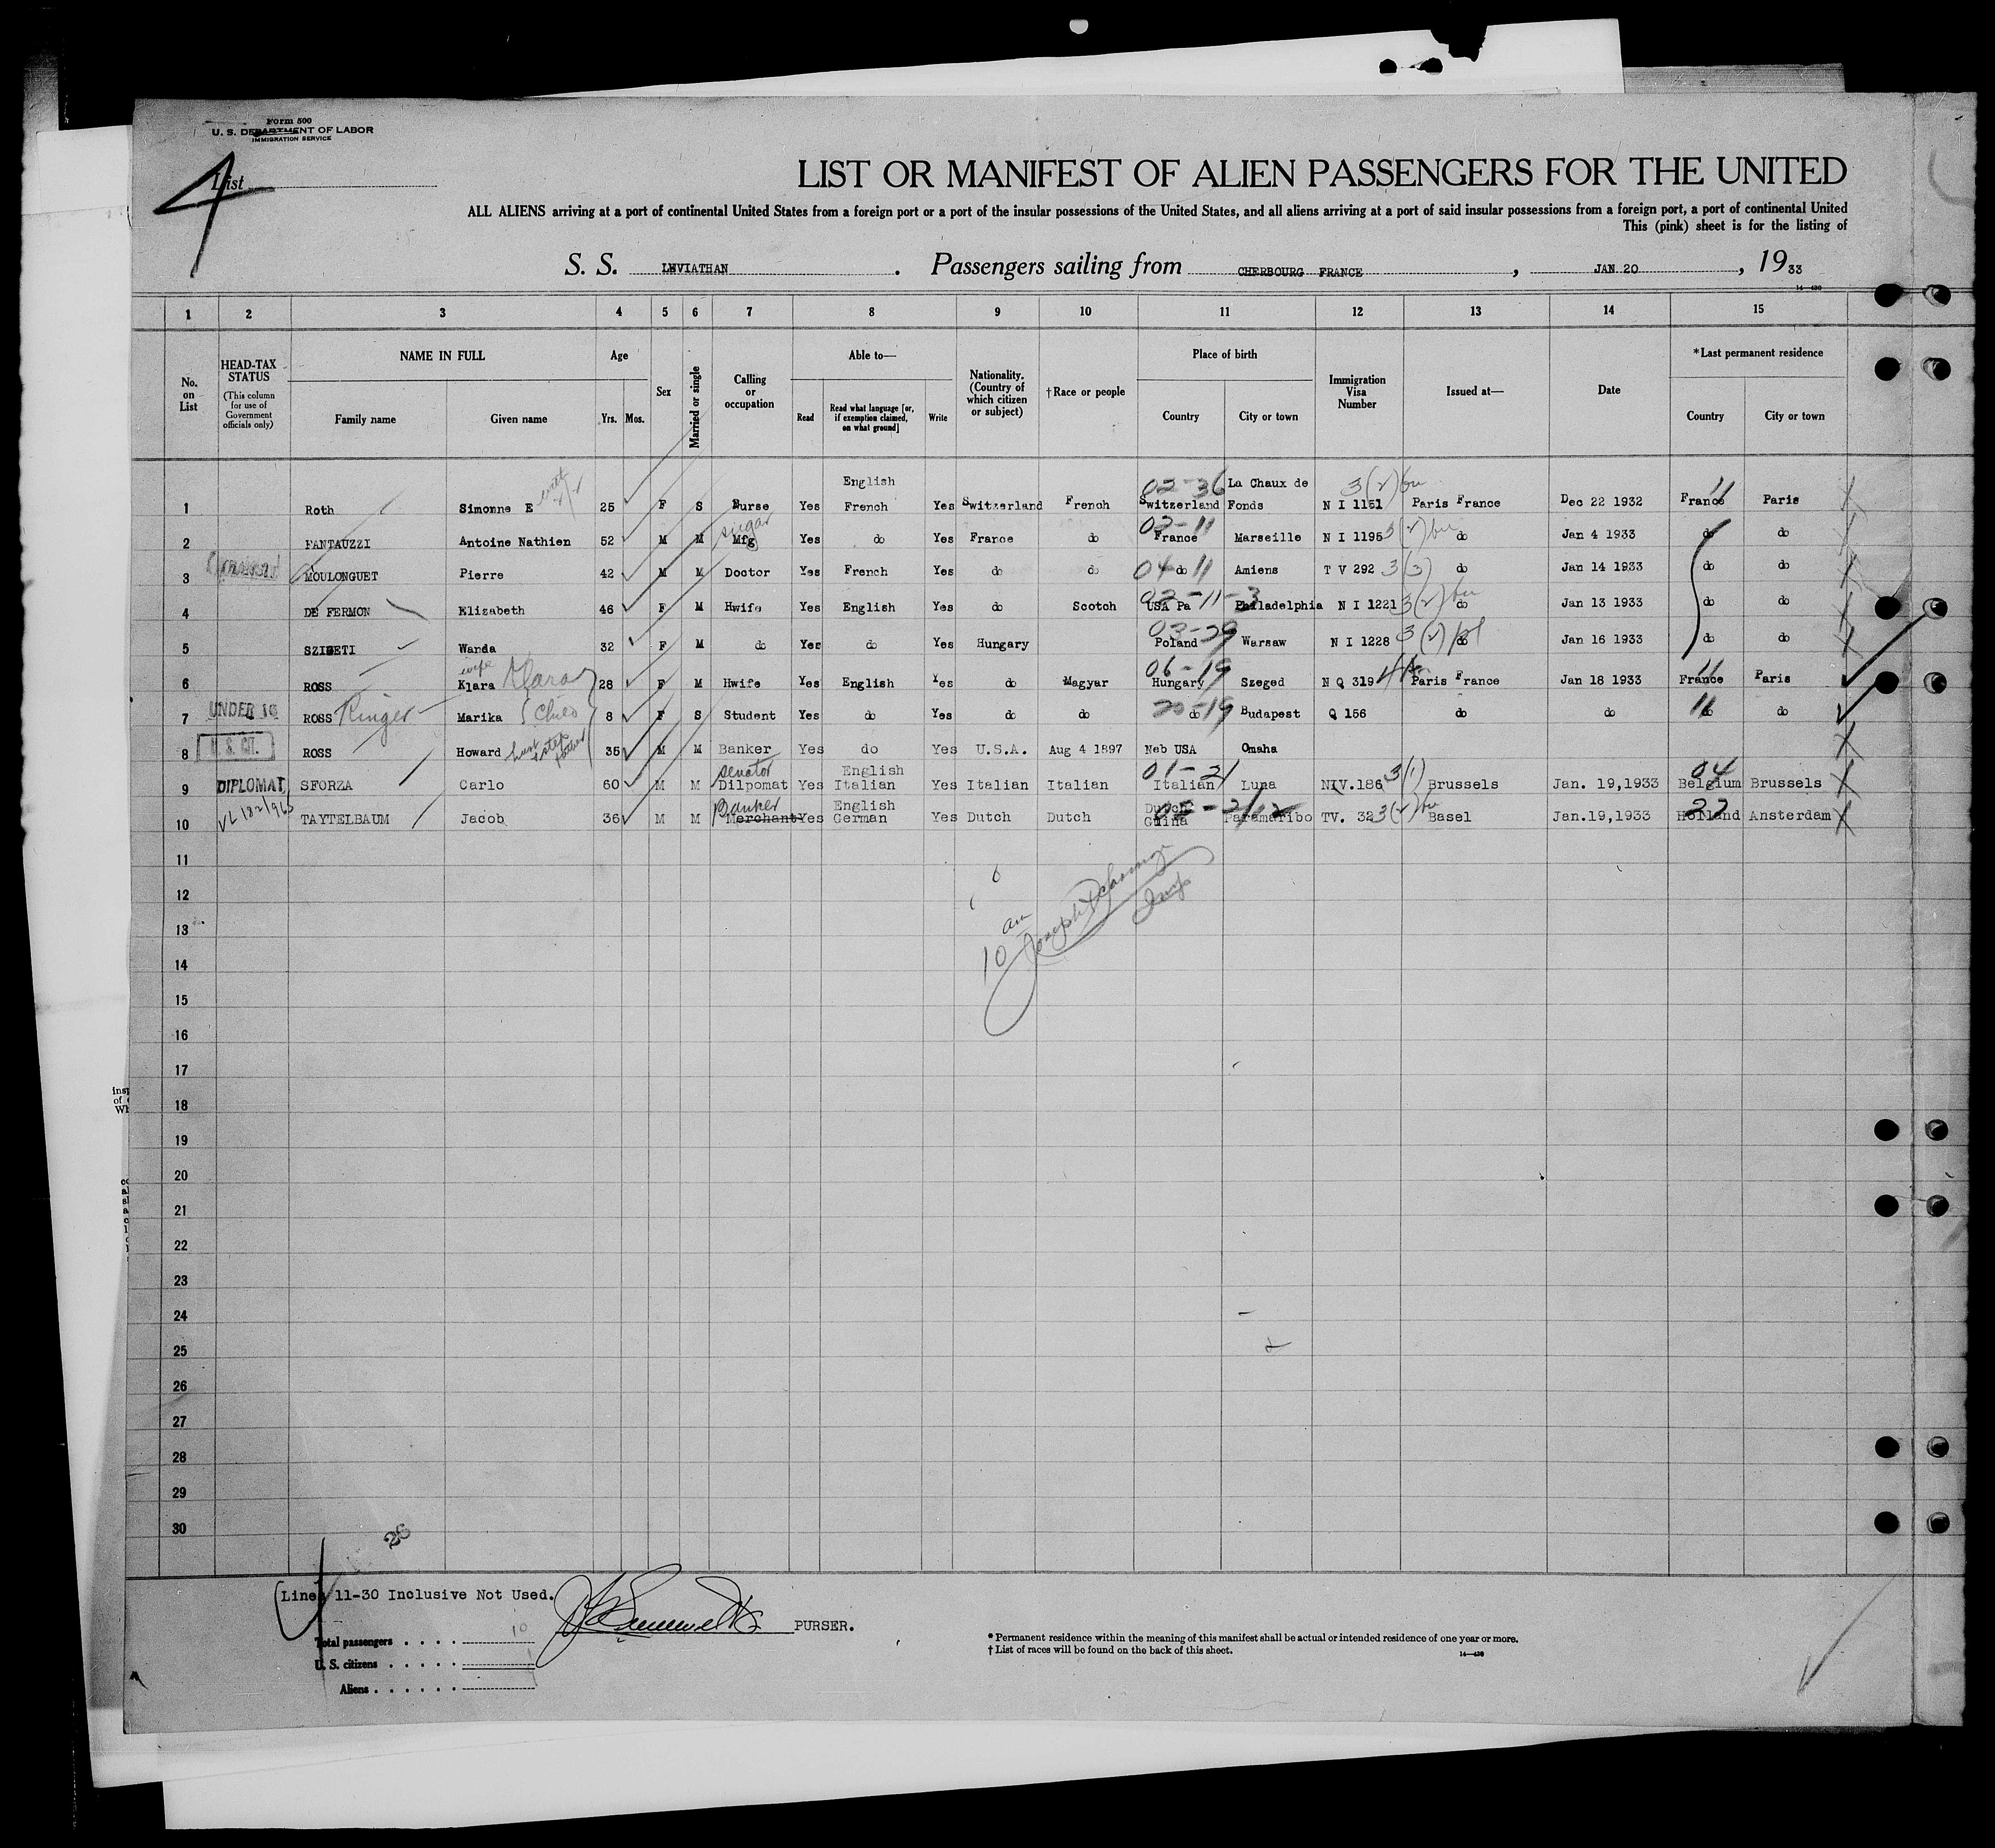 Form 500
U. S. DEPARTMENT OF LABOR
IMMIGRATION SERVICE
4
List
LIST OR MANIFEST OF ALIEN PASSENGERS FOR THE UNITED
ALL ALIENS arriving at a port of continental United States from a foreign port or a port of the insular possessions of the United States, and all aliens arriving at a port of said insular possessions from a foreign port, a port of continental United
This (pink) sheet is for the listing of
S. S. LEVIATHAN . Passengers sailing from CHERBOURG FRANCE , JAN 20 , 1933
14—430
1 2 3 4 5 6 7 8 9 10 11 12 13 14 15
No. on List
HEAD-TAX STATUS (This column for use of Government officials only)
NAME IN FULL Family name Given name
Age Yrs. Mos.
Sex
Married or single
Calling or occupation
Able to— Read Read what language [or, if exemption claimed, on what ground] Write
Nationality. (Country of which citizen or subject)
†Race or people
Place of birth Country City or town
Immigration Visa Number
Issued at—
Date
*Last permanent residence Country City or town
1 Roth Simonne E 25 F S Nurse Yes English French Yes Switzerland French 02-36 Switzerland La Chaux de Fonds N I 1151 3(2) Paris France Dec 22 1932 France 11 Paris
2 FANTAUZZI Antoine Nathien 52 M M sugar Mfg Yes do Yes France do 02-11 France Marseille N I 1195 3(2) do Jan 4 1933 do do
3 MOULONGUET Pierre 42 M M Doctor Yes French Yes do do 04 do 11 Amiens T V 292 3(3) do Jan 14 1933 do do
4 DE FERMON Elizabeth 46 F M Hwife Yes English Yes do Scotch 02-11-3 USA Pa Philadelphia N I 1221 3(2) do Jan 13 1933 do do
5 SZIGETI Wanda 32 F M do Yes do Yes Hungary 03-29 Poland Warsaw N I 1228 3(2) do Jan 16 1933 do do
6 ROSS wife Klara Klara 28 F M Hwife Yes English Yes do Magyar 06-19 Hungary Szeged N Q 319 Paris France Jan 18 1933 France 11 Paris
7 UNDER 16 ROSS Ringer Marika child 8 F S Student Yes do Yes do do 20-19 do Budapest Q 156 do do 11 do do
8 U. S. CIT. ROSS Howard husb & step father 35 M M Banker Yes do Yes U.S.A. Aug 4 1897 Neb USA Omaha
9 DIPLOMAT SFORZA Carlo 60 M M senator Dilpomat Yes English Italian Yes Italian Italian 01-21 Italian Luna NIV.186 3(1) Brussels Jan. 19,1933 04 Belgium Brussels
10 TAYTELBAUM Jacob 36 M M Banker Merchant Yes English German Yes Dutch Dutch Dutch Guina Paramaribo TV. 32 3(2) Basel Jan.19,1933 Holland Amsterdam
11
12
13
14
15
16
17
18
19
20
21
22
23
24
25
26
27
28
29
30
10 Joseph
26
Lines 11-30 Inclusive Not Used.
PURSER.
Total passengers 10
U. S. citizens 1
Aliens
* Permanent residence within the meaning of this manifest shall be actual or intended residence of one year or more.
† List of races will be found on the back of this sheet.
14—430